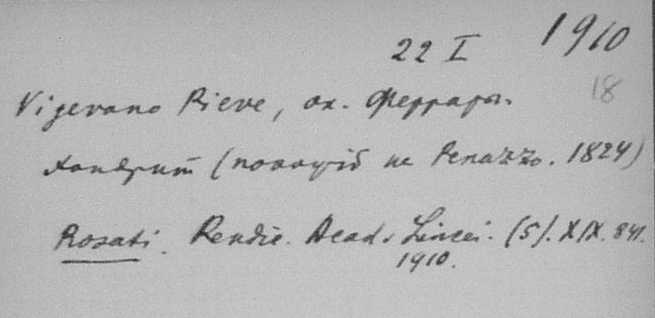 22 I 1910
18
Vigevano Pieve, ок. Феррары.
Хондрит (похожій на Renazzo. 1824)
Rosati. Rendic. Acad. Lincei. (5). XIX. 841.
1910.